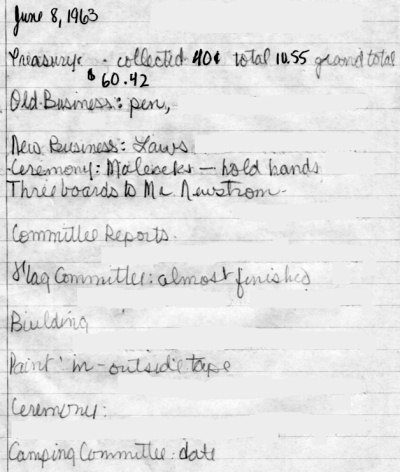 June 8, 1963
Treasury: . collected 40¢ total 10.55 grand total
$60.42
Old Business: pen,
New Business: Laws
Ceremony: — hold hands
Three boards to Mr. Newstrom.
Committee Reports.
Flag Committee: almost finished
Building
Paint in - outside tape
Ceremony:
Camping Committee: date